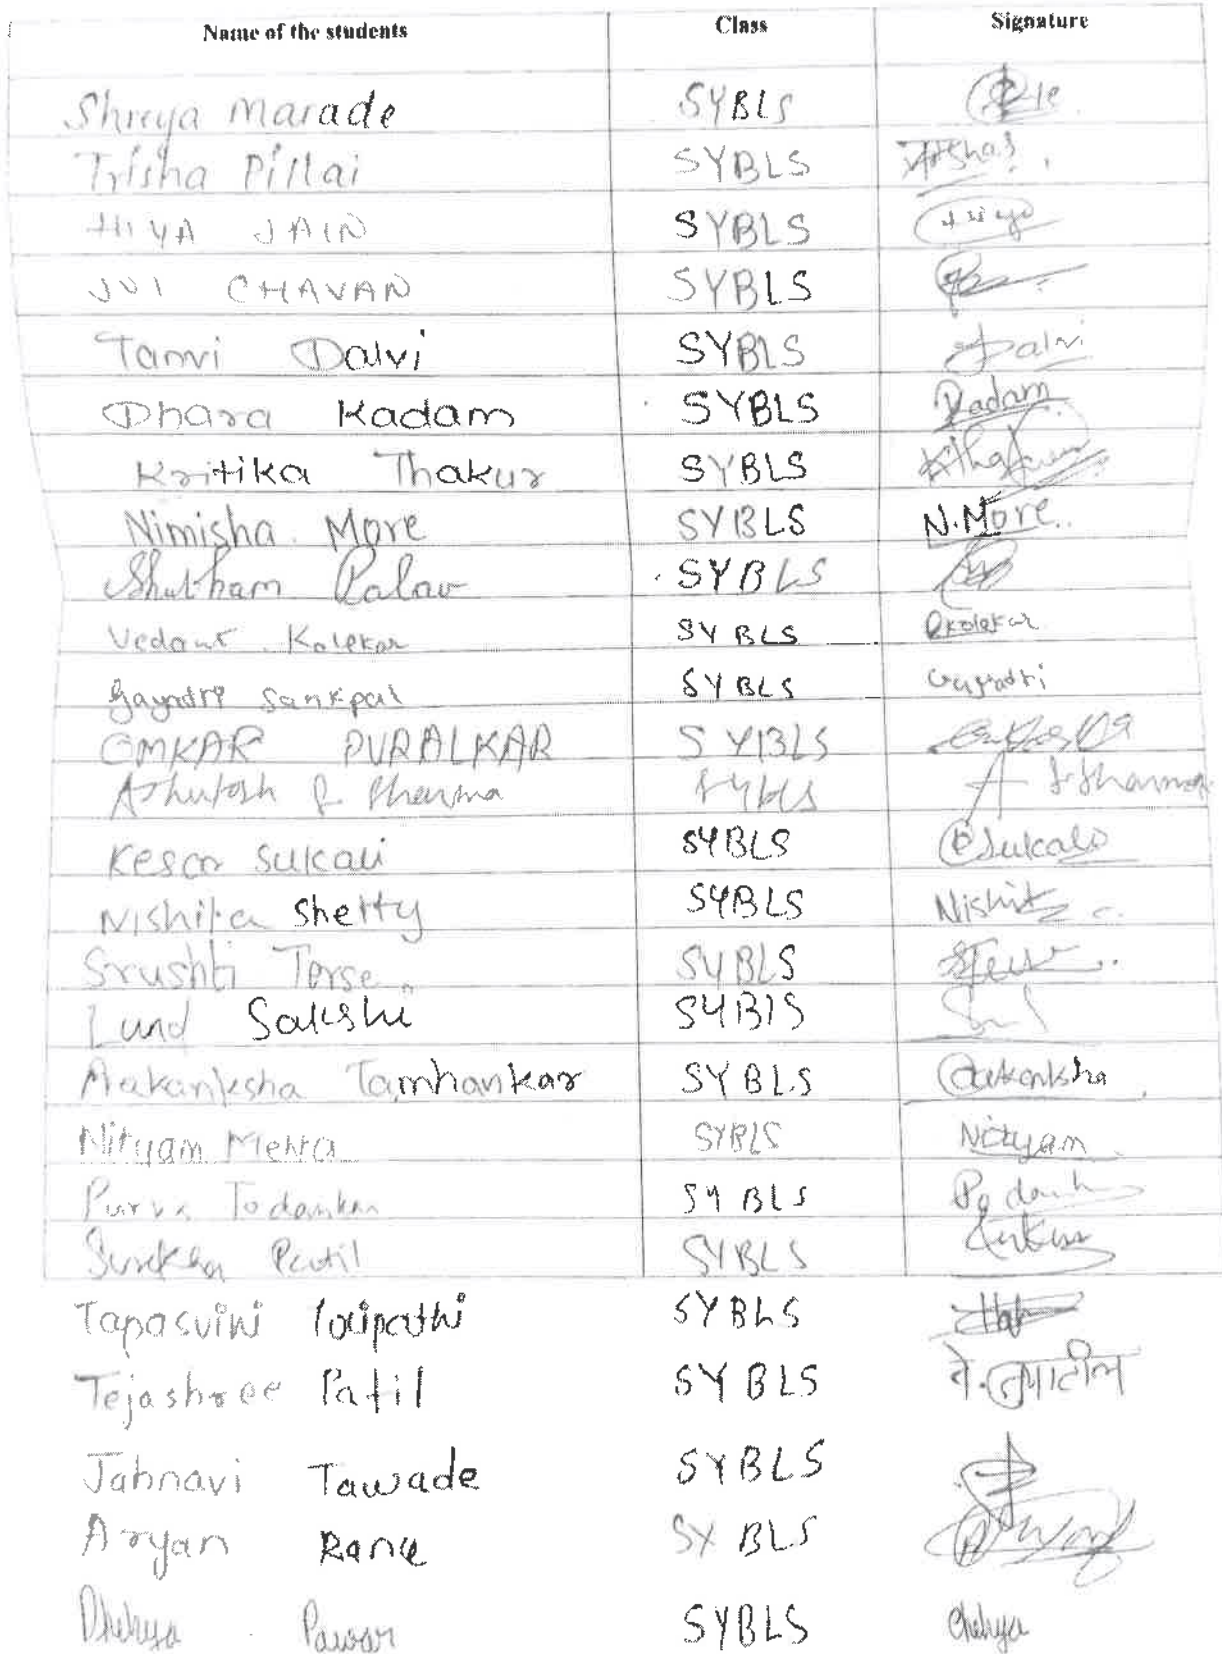 Name of the students Class Signature
Shreya Marade SYBLS
Trisha Pillai SYBLS Trisha
HIYA JAIN SYBLS Hiya
JUI CHAVAN SYBLS
Tanvi Dalvi SYBLS Dalvi
Dhara Kadam SYBLS Kadam
Kritika Thakur SYBLS
Nimisha More SYBLS N.More
Shubham Palav SYBLS
Vedant Kolekar SYBLS
Gayatri Sankpal SYBLS Gayatri
OMKAR PURALKAR SYBLS
Ashutosh Sharma SYBLS
Kesar Sukali SYBLS
Nishita Shetty SYBLS
Srushti Terse SYBLS
Lund Sakshi SYBLS
Aakanksha Tamhankar SYBLS Aakanksha
Nityam Mehta SYBLS Nityam
Purva Todankar SYBLS
Surekha Patil SYBLS
Tapasvini SYBLS
Tejashree Patil SYBLS
Jahnavi Tawade SYBLS
Aryan Rane SYBLS
Pawar SYBLS